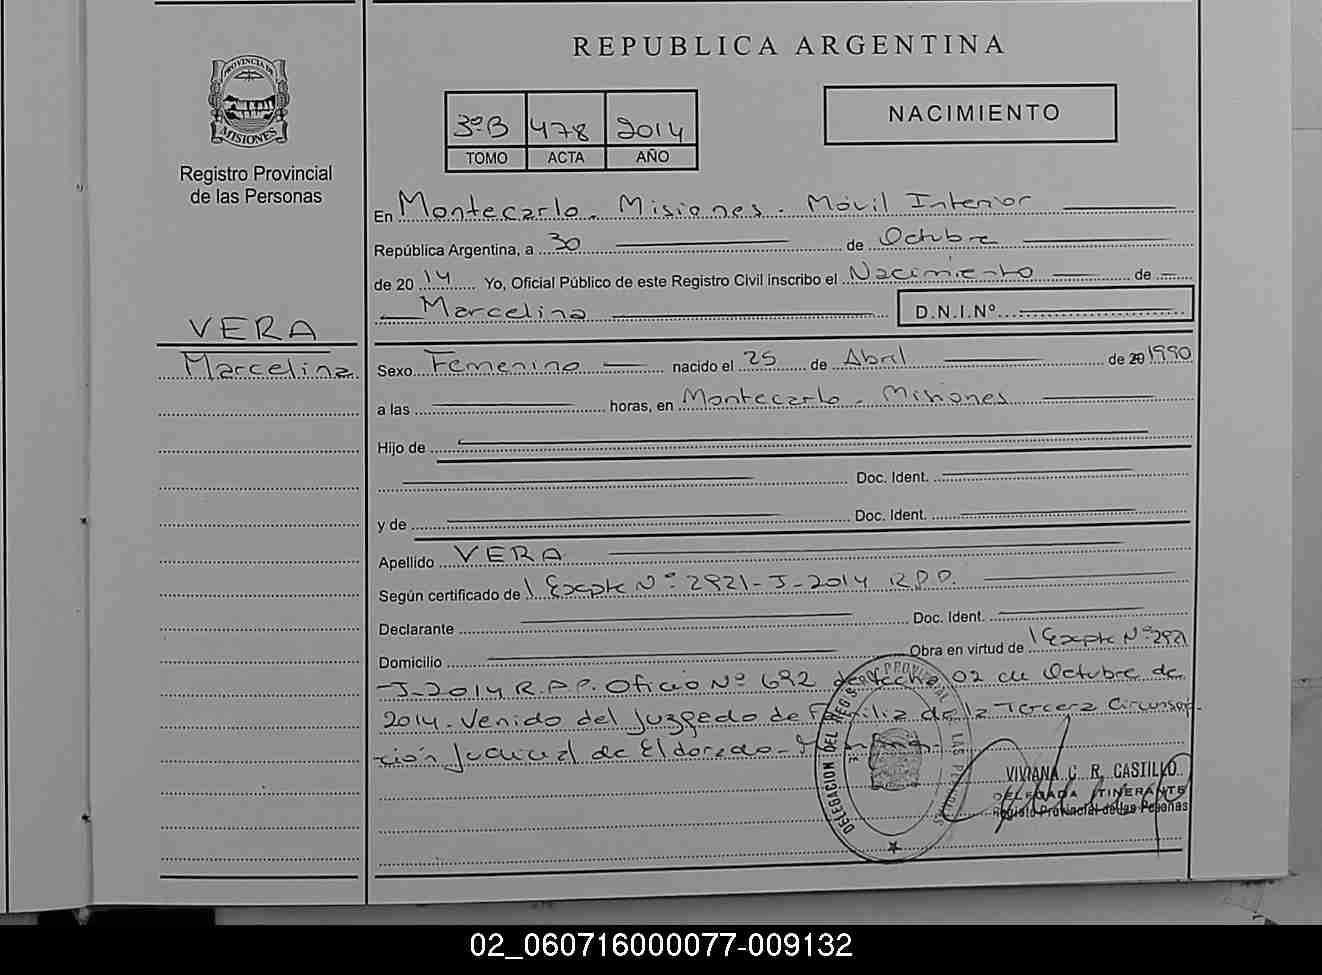 REPUBLICA ARGENTINA
PROVINCIA DE MISIONES
Registro Provincial
de las Personas
3ºB 478 2014
TOMO ACTA AÑO
NACIMIENTO
En Montecarlo - Misiones - Móvil Interior
República Argentina, a 30 de Octubre
de 2014 Yo, Oficial Público de este Registro Civil inscribo el Nacimiento de
Marcelina D.N.I.Nº
VERA
Marcelina
Sexo Femenino nacido el 25 de Abril de 20 1990
a las horas, en Montecarlo - Misiones
Hijo de
Doc. Ident.
y de Doc. Ident.
Apellido VERA
Según certificado de Expte Nº 2921-J-2014 R.P.P.
Declarante Doc. Ident.
Domicilio Obra en virtud de Expte Nº 2921
-J-2014 R.P.P. Oficio Nº 692 de fecha 02 de Octubre de
2014. Venido del Juzgado de Familia de la Tercera Circunscrip-
ción Judicial de Eldorado - Misiones.
DELEGACION DEL REGISTRO PROVINCIAL DE LAS PERSONAS
VIVIANA C. R. CASTILLO
DELEGADA ITINERANTE
Registo Provincial de las Pesonas
02_060716000077-009132